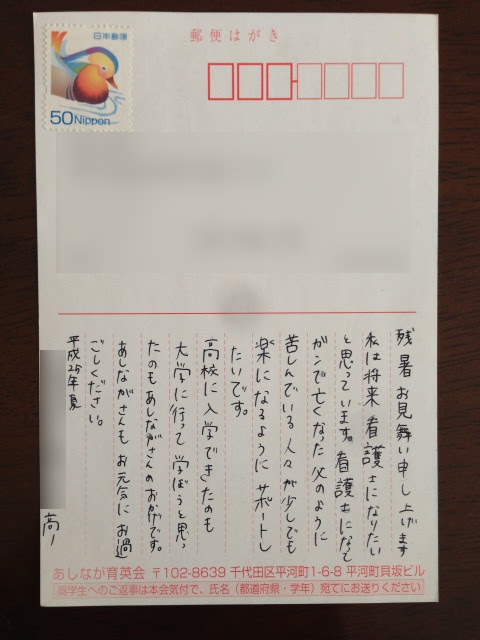 郵便はがき
日本郵便
50 Nippon
残暑お見舞い申し上げます
私は将来看護士になりたい
と思っています。看護士になって
ガンで亡くなった父のように
苦しんでいる人々が少しでも
楽になるようにサポートし
たいです。
高校に入学できたのも
大学に行って学ぼうと思っ
たのもあしながさんのおかげです。
あしながさんもお元気にお過
ごしください。
平成25年夏
高1
あしなが育英会 〒102-8639 千代田区平河町1-6-8 平河町貝坂ビル
奨学生へのご返事は本会気付で、氏名(都道府県・学年)宛てにお送りください